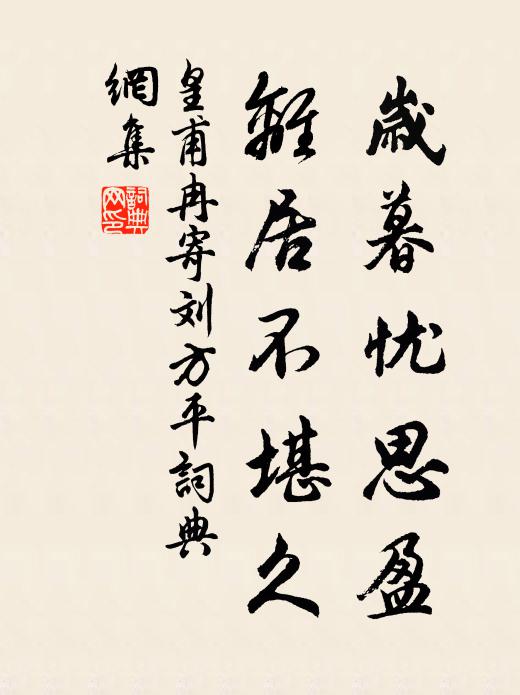 歳暮忧思盈
離居不堪久
皇甫冉寄刘方平詞典
網集
詞典
网印